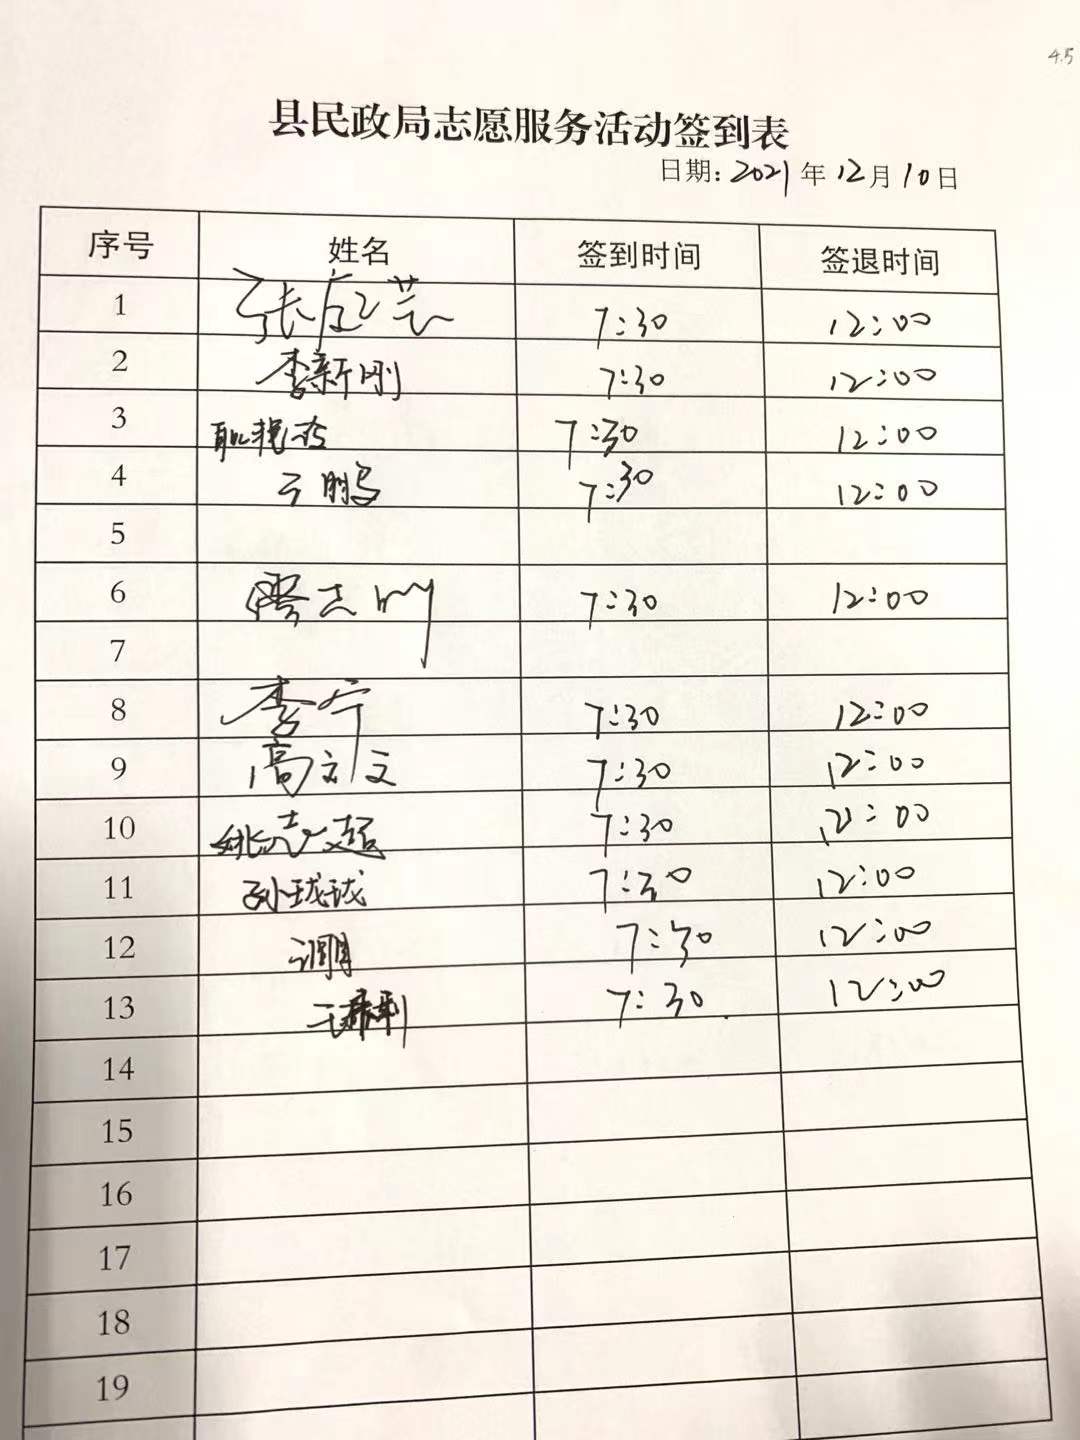 4.5
县民政局志愿服务活动签到表
日期: 2021年12月10日
序号 姓名 签到时间 签退时间
1 张应芸 7:30 12:00
2 李新刚 7:30 12:00
3 7:30 12:00
4 鹏 7:30 12:00
5
6 廖志刚 7:30 12:00
7
8 李宁 7:30 12:00
9 高文 7:30 12:00
10 姚志超 7:30 12:00
11 孙珑珑 7:30 12:00
12 7:30 12:00
13 7:30 12:00
14
15
16
17
18
19